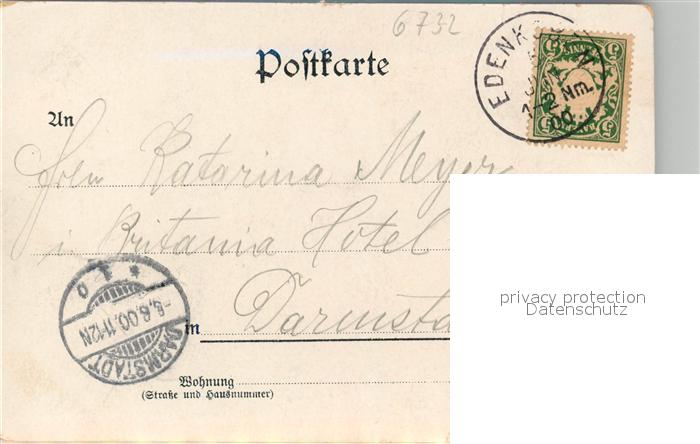 6732
Postkarte
EDENKOBEN
1-2 NM.
00
An
Frln Katarina Meyer
i Britania Hotel
in Darmsta
DARMSTADT
-6.6.00.11-12N
Wohnung
(Straße und Hausnummer)
privacy protection
Datenschutz